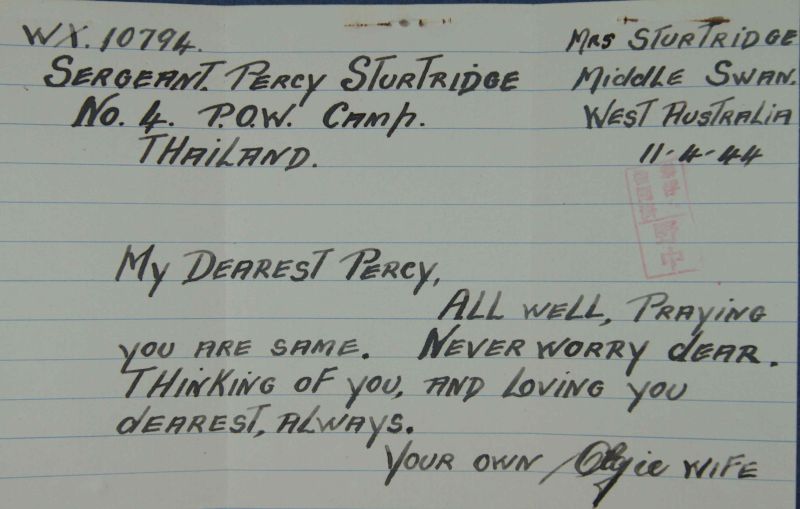 WX. 10794.
SERGEANT. PERCY STURTRIDGE
No. 4. P.O.W. CAMP.
THAILAND.
MRS STURTRIDGE
MIDDLE SWAN.
WEST AUSTRALIA
11-4-44
MY DEAREST PERCY,
ALL WELL, PRAYING
YOU ARE SAME. NEVER WORRY DEAR.
THINKING OF YOU, AND LOVING YOU
DEAREST, ALWAYS.
YOUR OWN WIFE